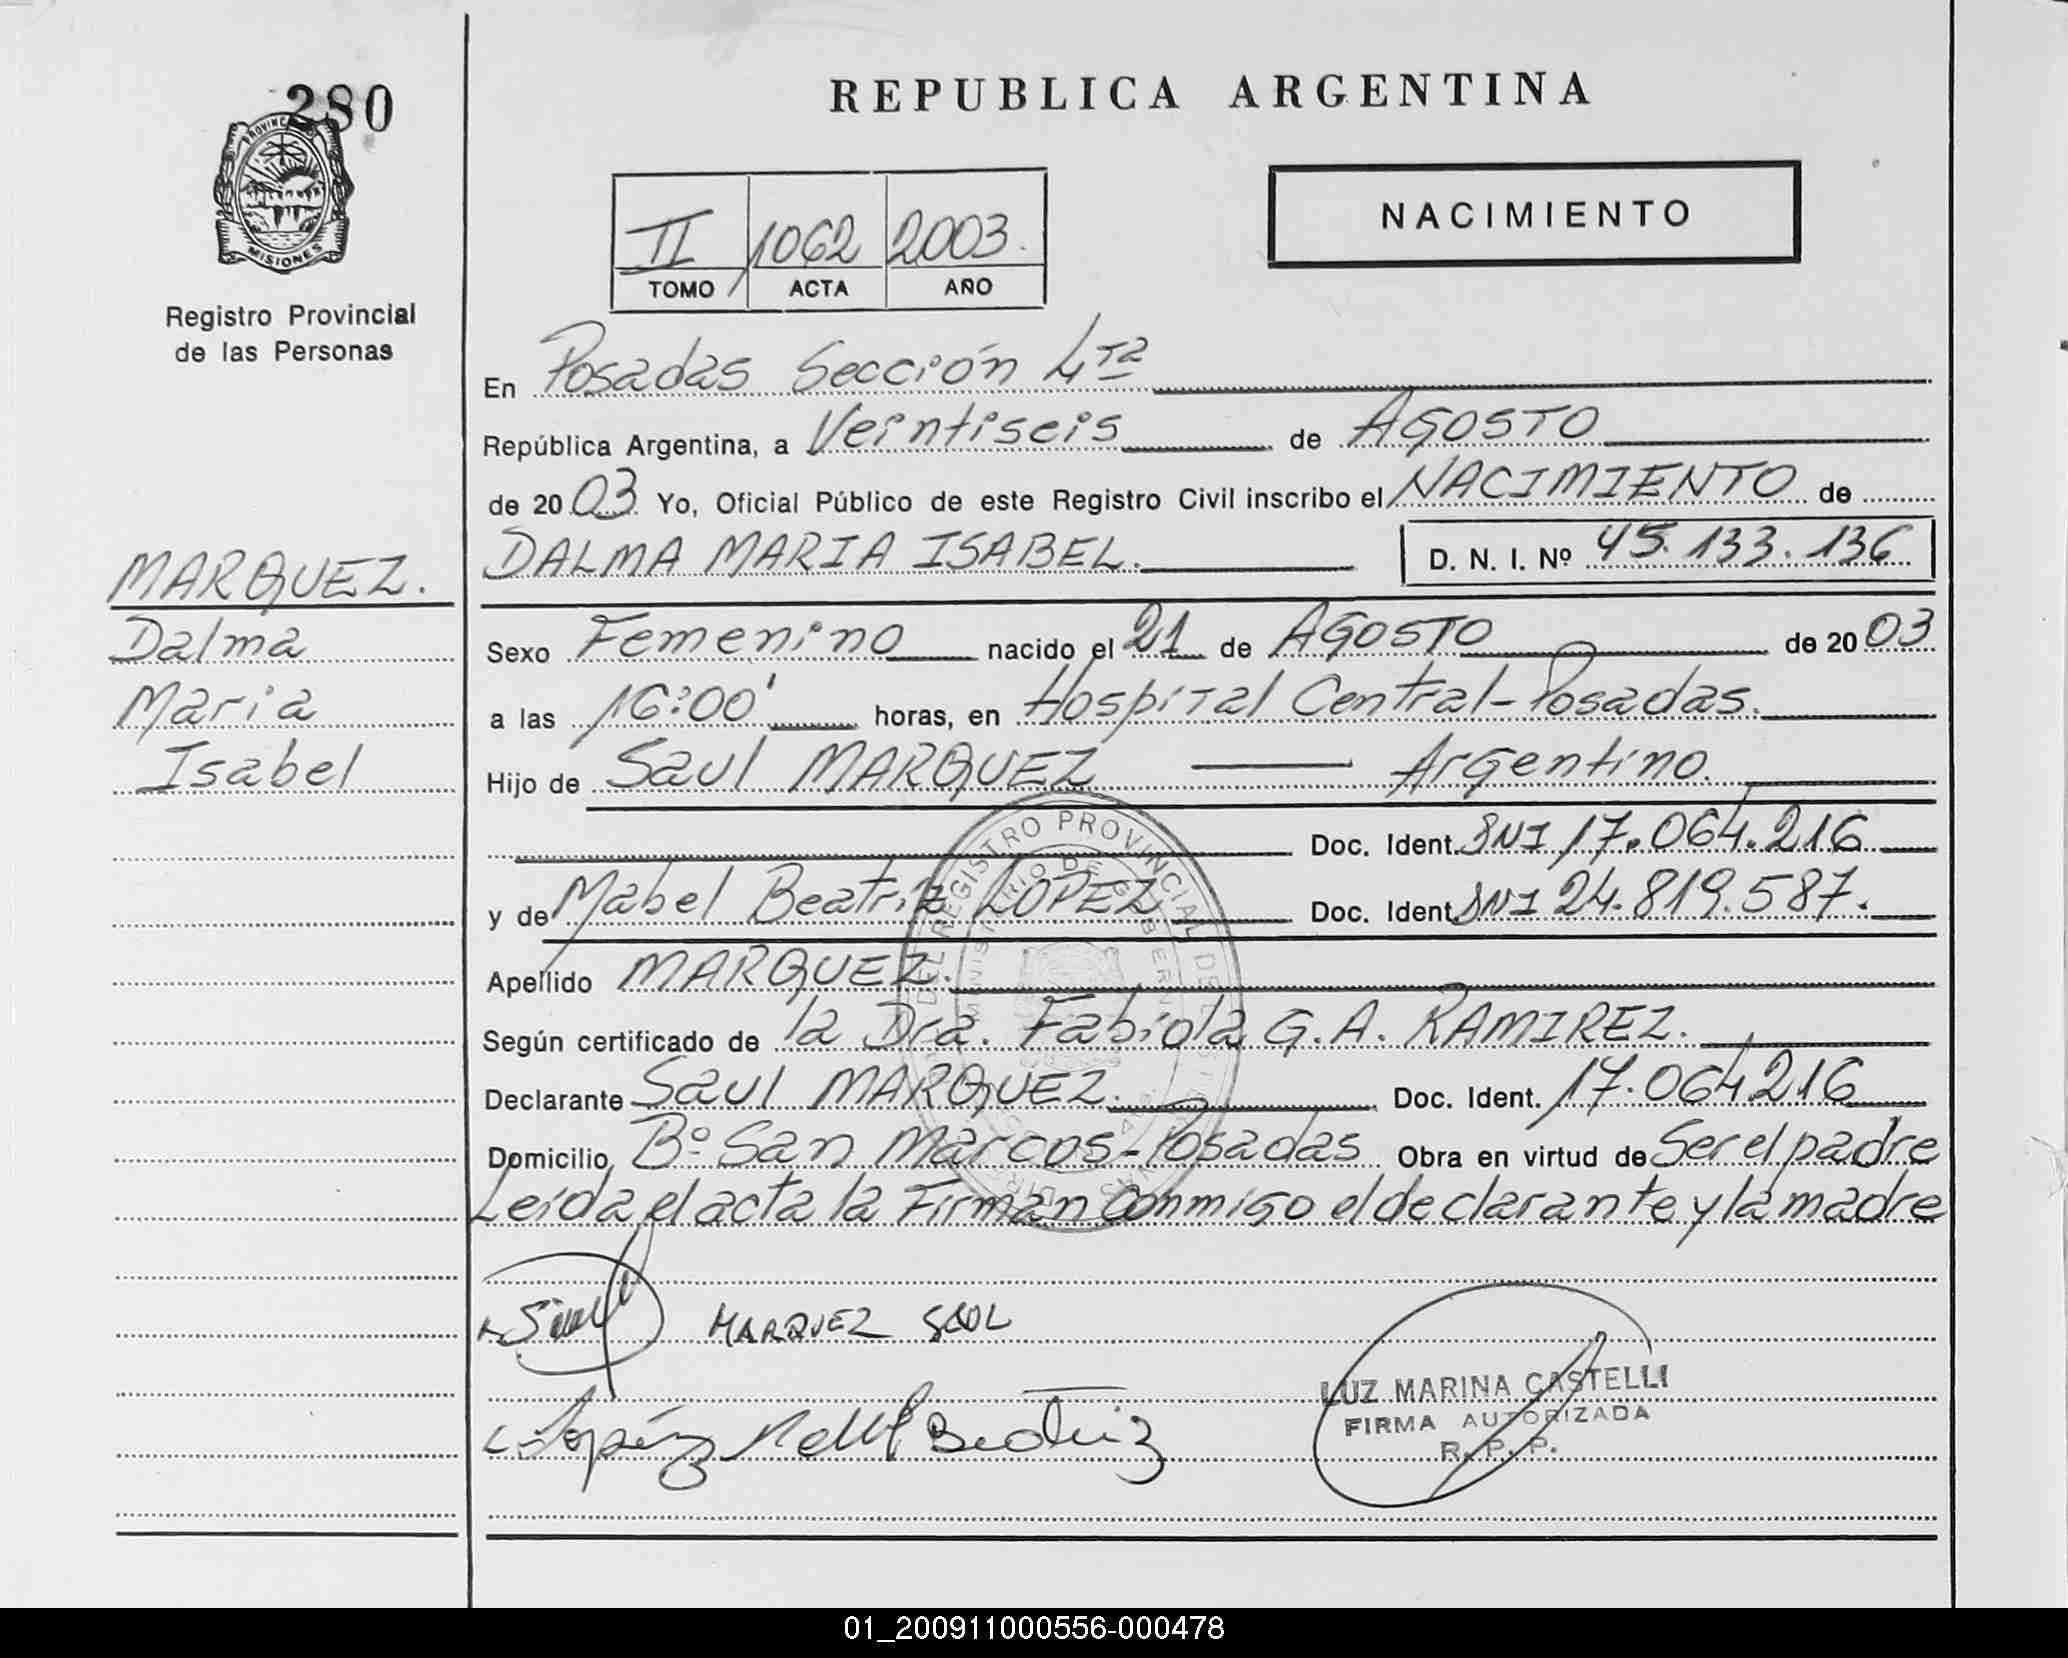 280
PROVINCIA
MISIONES
Registro Provincial
de las Personas
MARQUEZ.
Dalma
Maria
Isabel
REPUBLICA ARGENTINA
II 1062 2003.
TOMO ACTA AÑO
NACIMIENTO
En Posadas Sección 4ta
República Argentina, a Veintiseis de AGOSTO
de 2003 Yo, Oficial Público de este Registro Civil inscribo el NACIMIENTO de
DALMA MARIA ISABEL. D. N. I. Nº 45.133.136
Sexo Femenino nacido el 21 de AGOSTO de 2003
a las 16:00' horas, en Hospital Central-Posadas.
Hijo de Saul MARQUEZ — Argentino.
Doc. Ident. DNI 17.064.216
y de Mabel Beatriz LOPEZ Doc. Ident. DNI 24.819.587.
Apellido MARQUEZ.
Según certificado de la Dra. Fabiola G.A. RAMIREZ.
Declarante Saul MARQUEZ. Doc. Ident. 17.064.216
Domicilio Bº San Marcos-Posadas Obra en virtud de Ser el padre
Leída el acta la Firman Conmigo el declarante y la madre
MARQUEZ SAUL
LUZ MARINA CASTELLI
FIRMA AUTORIZADA
R. P. P.
Lopez Beatriz
REGISTRO PROVINCIAL DE
MINISTERIO DE GOBIERNO
01_200911000556-000478